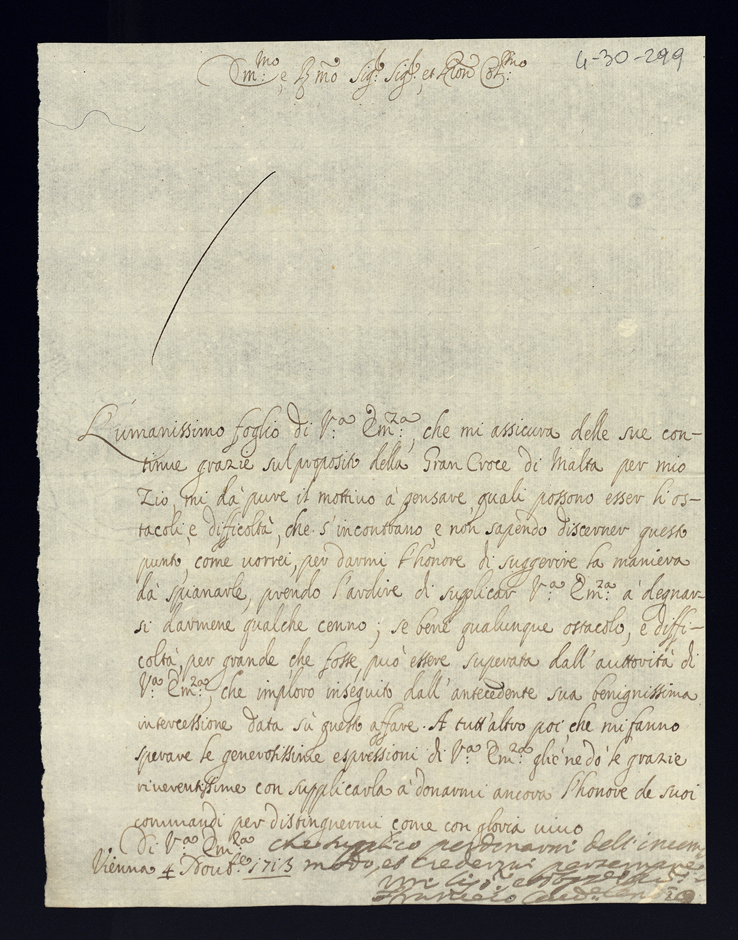 4-30-299
Em:mo, e Rmo Sig:r Sig:r, et Pron Col:mo
L'umanissimo foglio di V:a Em:za, che mi assicura delle sue con-
tinue grazie sul proposito della Gran Croce di Malta per mio
Zio, mi dà pure il mottivo à pensare, quali possono esser li os-
tacoli, e difficoltà, che s'incontrano, e non sapendo discerner questo
punto, come vorrei, per darmi l'honore di suggerire la maniera
dà spianarle, prendo l'ardire di suplicar V:a Em:za à degnar-
si darmene qualche cenno; se bene qualunque ostacolo, e diffi-
coltà, per grande che fosse, può essere superata dall'auttorità di
V:a Em:za, che imploro inseguito dall'antecedente sua benignissima
intercessione data sù questo affare. A tutt'altro poi che mi fanno
sperare le generosissime espressioni di V:a Em:za gliene dò le grazie
riverentissime con supplicarla à donarmi ancora l'honore de suoi
commandi per distinguermi come con gloria vivo
Di V:a Em:za che suplico perdonarmi dell'
Vienna 4 Novb:e 1713 modo, et credermi